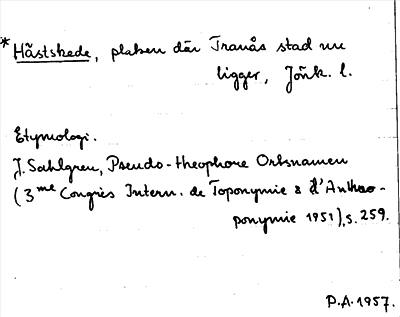 *Hästskede, platsen där Tranås stad nu
ligger, Jönk. l.
Etymologi.
J. Sahlgren, Pseudo-theophore Ortsnamen
(3me Congrès Intern. de Toponymie & d'Anthro-
ponymie 1951), s. 259.
P.A. 1957.